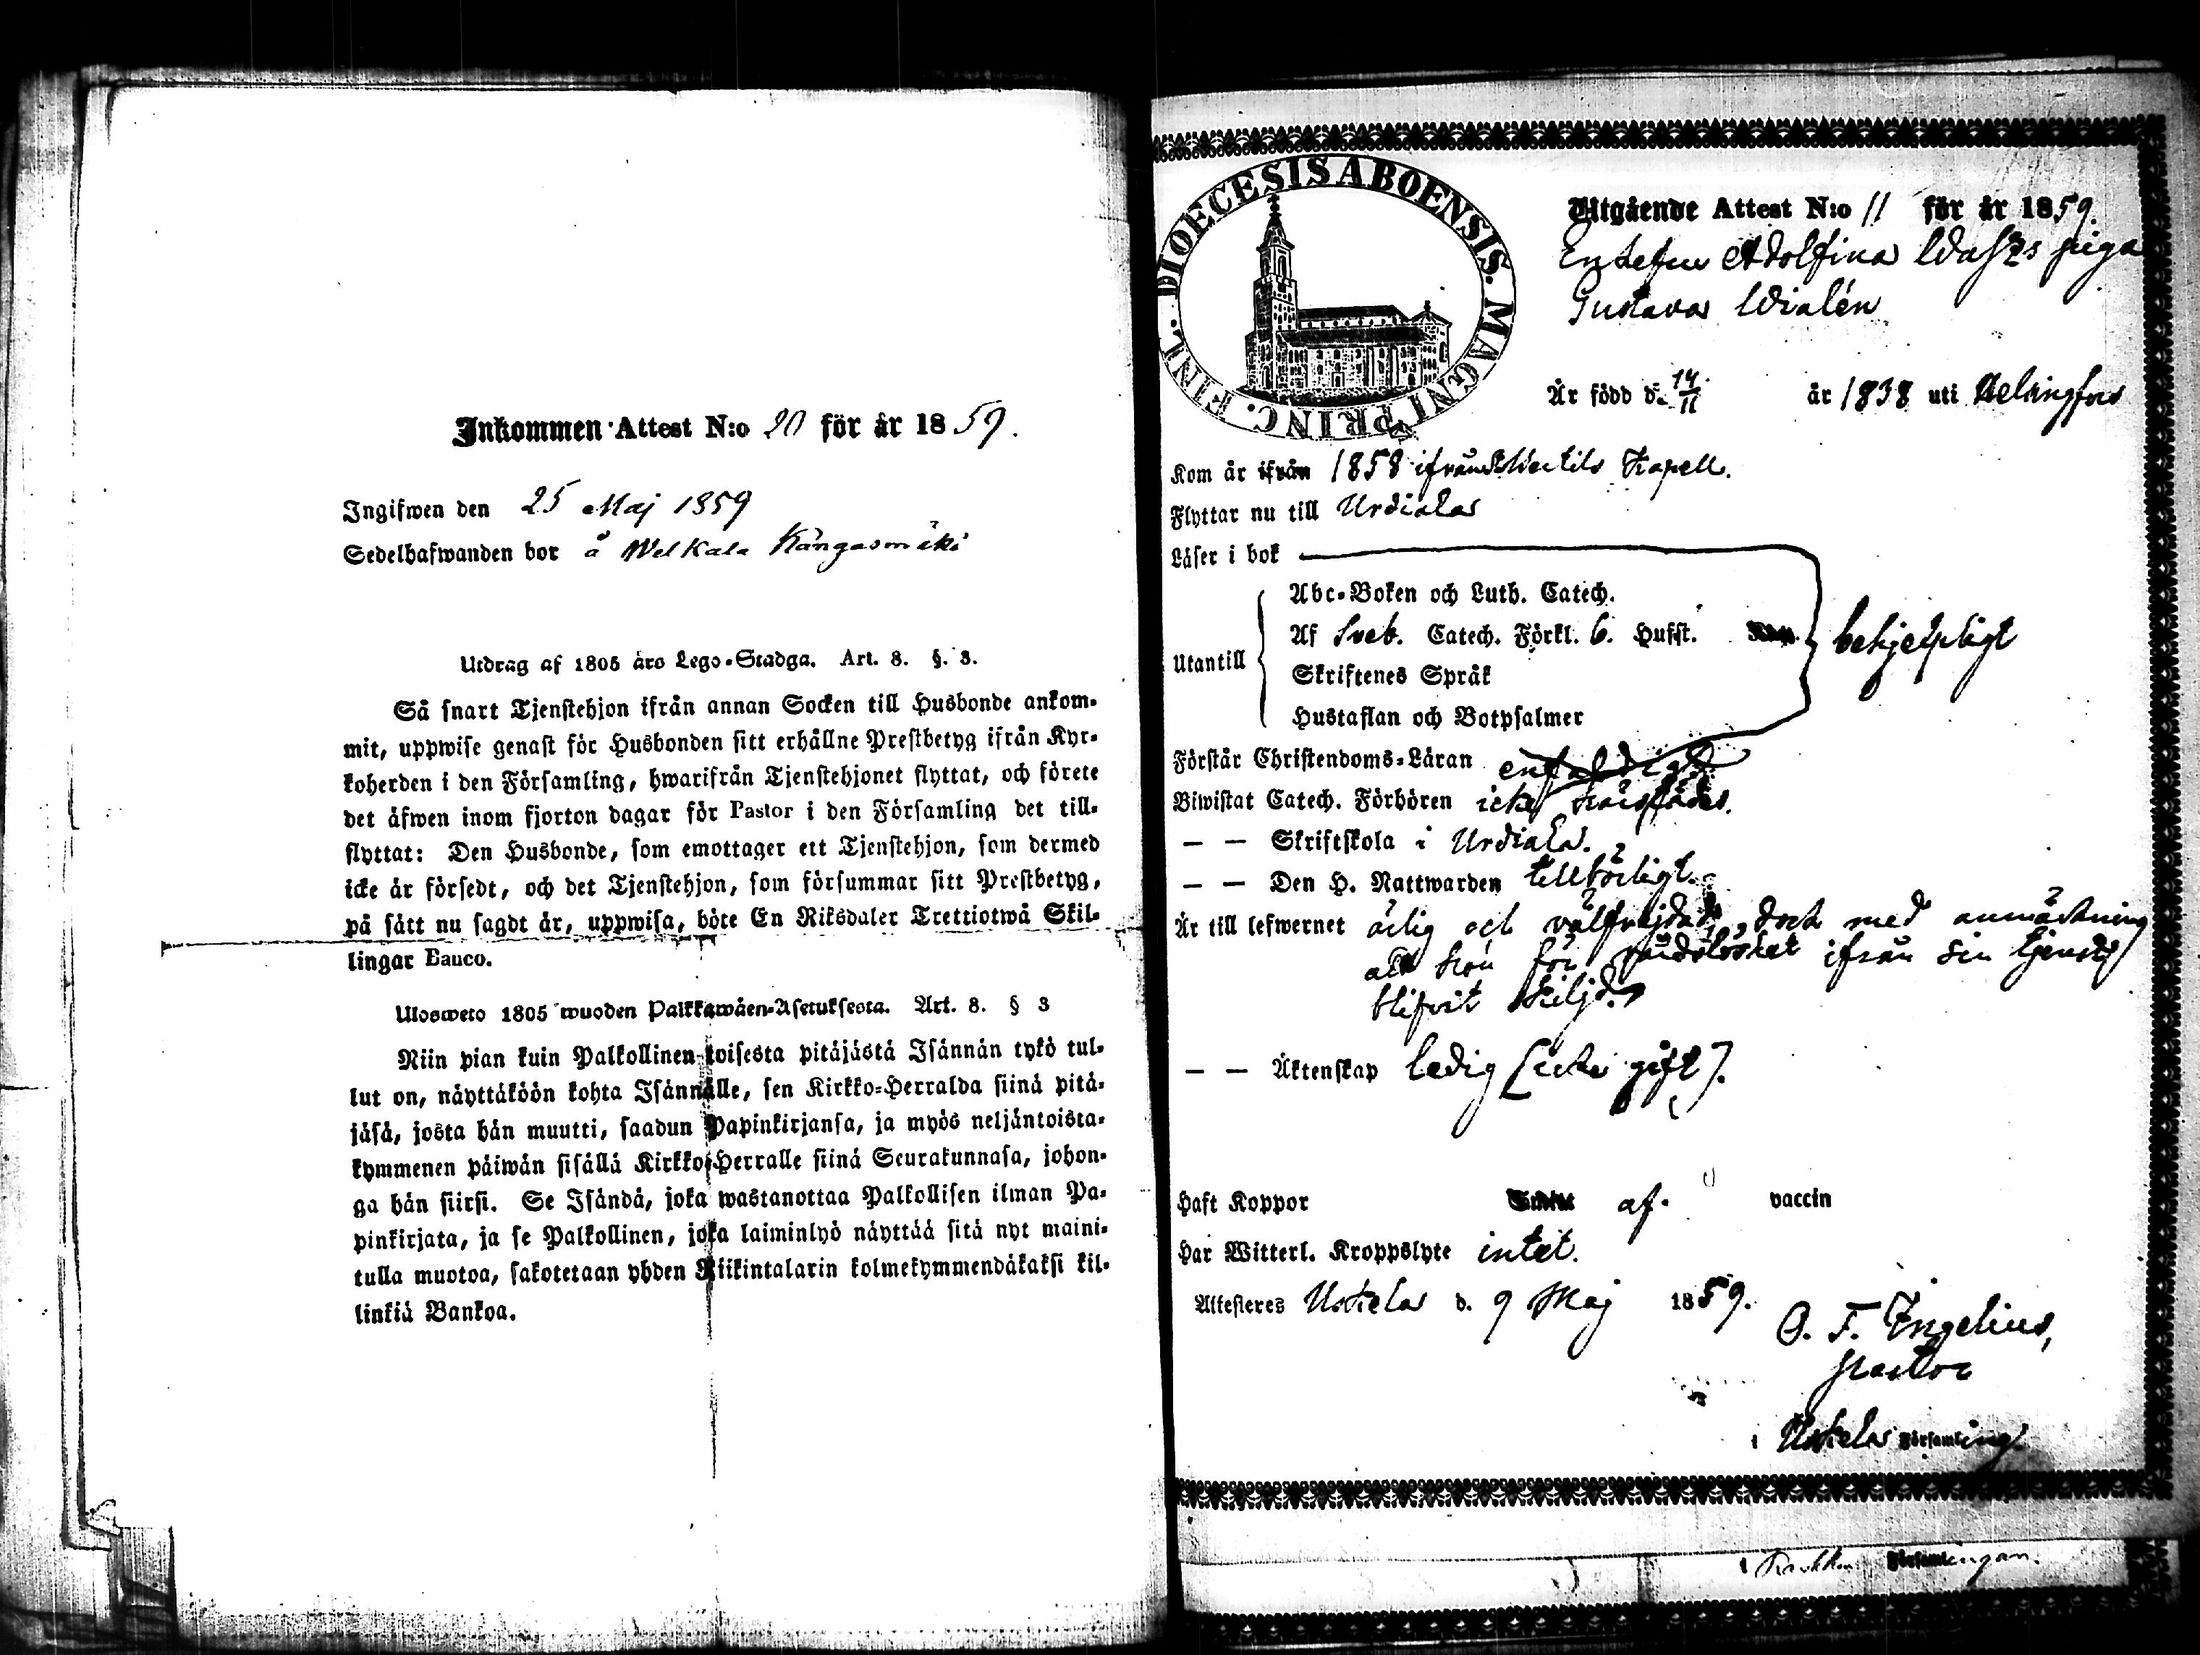 Inkommen Attest N:o 20 för år 1859.
Ingifwen den 25 Maj 1859
Sedelhafwanden bor å Welkala Kångasmäki
Utdrag af 1805 års Lego-Stadga. Art. 8. §. 3.
Så snart Tjenstehjon ifrån annan Socken till Husbonde ankom-
mit, uppwise genast för Husbonden sitt erhållne Prestbetyg ifrån Kyr-
koherden i den Församling, hwarifrån Tjenstehjonet flyttat, och förete
det äfwen inom fjorton dagar för Pastor i den Församling det till-
flyttat: Den Husbonde, som emottager ett Tjenstehjon, som dermed
icke är försedt, och det Tjenstehjon, som försummar sitt Prestbetyg,
på sätt nu sagdt är, uppwisa, böte En Riksdaler Trettiotwå Skil-
lingar Banco.
Ulosweto 1805 wuoden Palkkawäen-Asetuksesta. Art. 8. § 3
Niin pian kuin Palkollinen toisesta pitäjästä Isännän tykö tul-
lut on, näyttäköön kohta Isännälle, sen Kirkko-Herralda siinä pitä-
jäsä, josta hän muutti, saadun Papinkirjansa, ja myös neljäntoista-
kymmenen päiwän sisällä Kirkko-Herralle siinä Seurakunnasa, johon-
ga hän siirsi. Se Isändä, joka wastanottaa Palkollisen ilman Pa-
pinkirjata, ja se Palkollinen, joka laiminlyö näyttää sitä nyt maini-
tulla muotoa, sakotetaan yhden Riikintalarin kolmekymmendäkaksi kil-
linkiä Bankoa.
DIOECESIS ABOENSIS. MAGNI PRINC. FINL.
Utgående Attest N:o 11 för år 1859.
Enkefru Adolfina piga
Gustava Widlén
Är född d. 14/11 år 1838 uti Helsingfors
Kom år ifrån 1858 ifrån Kapell.
Flyttar nu till Urdiala
Läser i bok
Utantill
Abc-Boken och Luth. Catech.
Af Sveb. Catech. Förkl. 6. Hufst.
Skriftenes Språk
Hustaflan och Botpsalmer
behjelpligt
Förstår Christendoms-Läran enfaldigt
Biwistat Catech. Förhören icke härstädes.
— — Skriftskola i Urdiala.
— — Den H. Nattwarden tillbörligt.
Är till lefwernet ärlig och välfrejdad, dock med anmärkning
att hon för ifrån sin tjenst
blifvit skiljd.
— — Äktenskap ledig (icke gift).
Haft Koppor af vaccin
Har Witterl. Kroppslyte intet.
Attesteres Uskela d. 9 Maj 1859.
O. F. Ingelius,
pastor
i Uskela Församling.
i Församlingan.